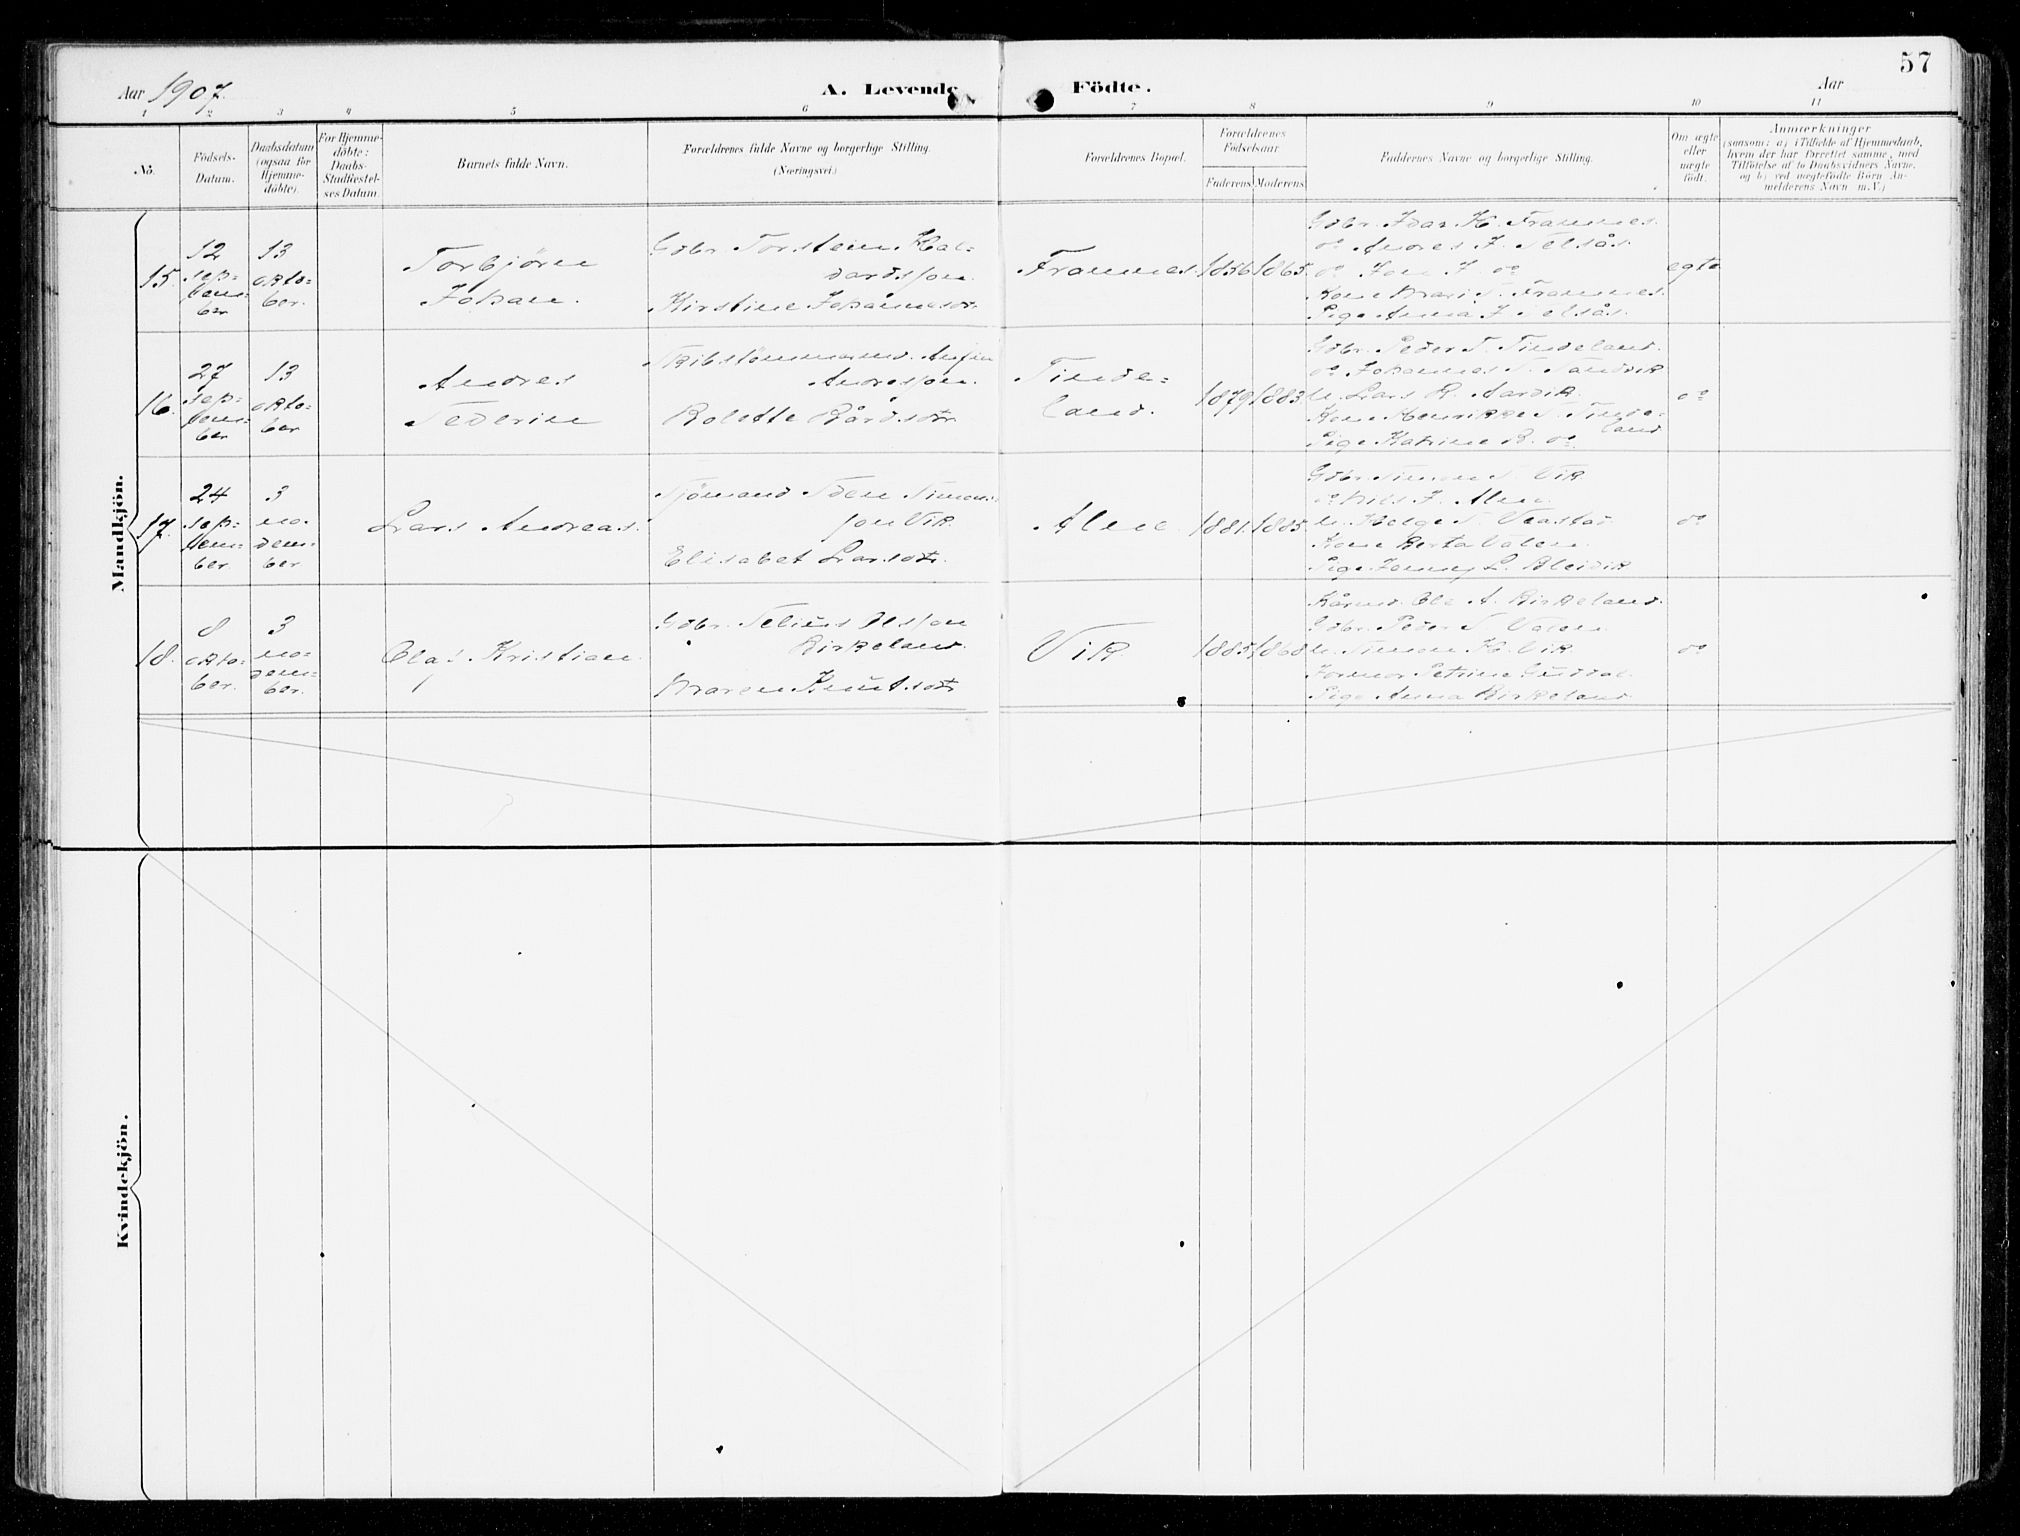 57
Aar 1907.
A. Levende Födte.
Aar
1 2 3 4 5 6 7 8 9 10 11
No.
Födsels-
Datum.
Daabsdatum
(ogsaa for
Hjemme-
döbte).
For Hjemme-
döbte:
Daabs-
Stadfestel-
ses Datum.
Barnets fulde Navn.
Forældrenes fulde Navne og borgerlige Stilling.
(Næringsvei.)
Forældrenes Bopæl.
Forældrenes
Födselsaar
Faderens
Moderens
Faddernes Navne og borgerlige Stilling.
Om ægte
eller
uægte
födt.
Anmærkninger
(saasom: a) i Tilfælde af Hjemmedaab,
hvem der har forrettet samme, med
Tilföielse af to Daabsvidners Navne,
og b) ved uægtefödte Börn An-
melderens Navn m.V.)
Mandkjön.
15.
12
sep-
tem-
ber
13
okto-
ber.
Torbjörn
Johan.
Gdbr. Torstein Hal-
vardsson
Kirstine Johannesdtr.
Framnes.
1856.
1865.
Gdbr. Ivar H. Framnes.
do Andres J. Telsås.
do Jon J. do
Kone Mari T. Framnes.
Pige Anna J. Telsås.
egte
16.
27
sep-
tem-
ber
13
okto-
ber
Andres
Federin
Andresson.
Bolette Bårdsdtr.
Tinde-
land.
1879
1883
Gdbr. Peder T. Tindeland.
do Johannes T. Tandvik
U. Lars B. Aarvik.
Kone Henrikke T. Tinde-
land
Pige Katrine B. do
do
17.
24
sep-
tem-
ber.
3
no-
vem-
ber
Lars Andreas.
Sjömand Sven Simons-
son Vik.
Elisabet Larsdtr.
Alne.
1881.
1885.
Gdbr. Simon S. Vik
do Nils J. Alne.
U. Helge
Kone Berta Valen.
Pige Jenny L. Bleivik
do
18.
8
okto-
ber.
3
no-
vem-
ber.
Olaf Kristian.
Gdbr. Selius Olsson
Birkeland.
Maren Knutsdtr
Vik
1883.
1868
Kårmd. Ole A. Birkeland.
Gdbr. Peder T. Valen.
U. Simon H. Vik
Jormor Petrine
Pige Anna Birkeland.
do
Kvindekjön.